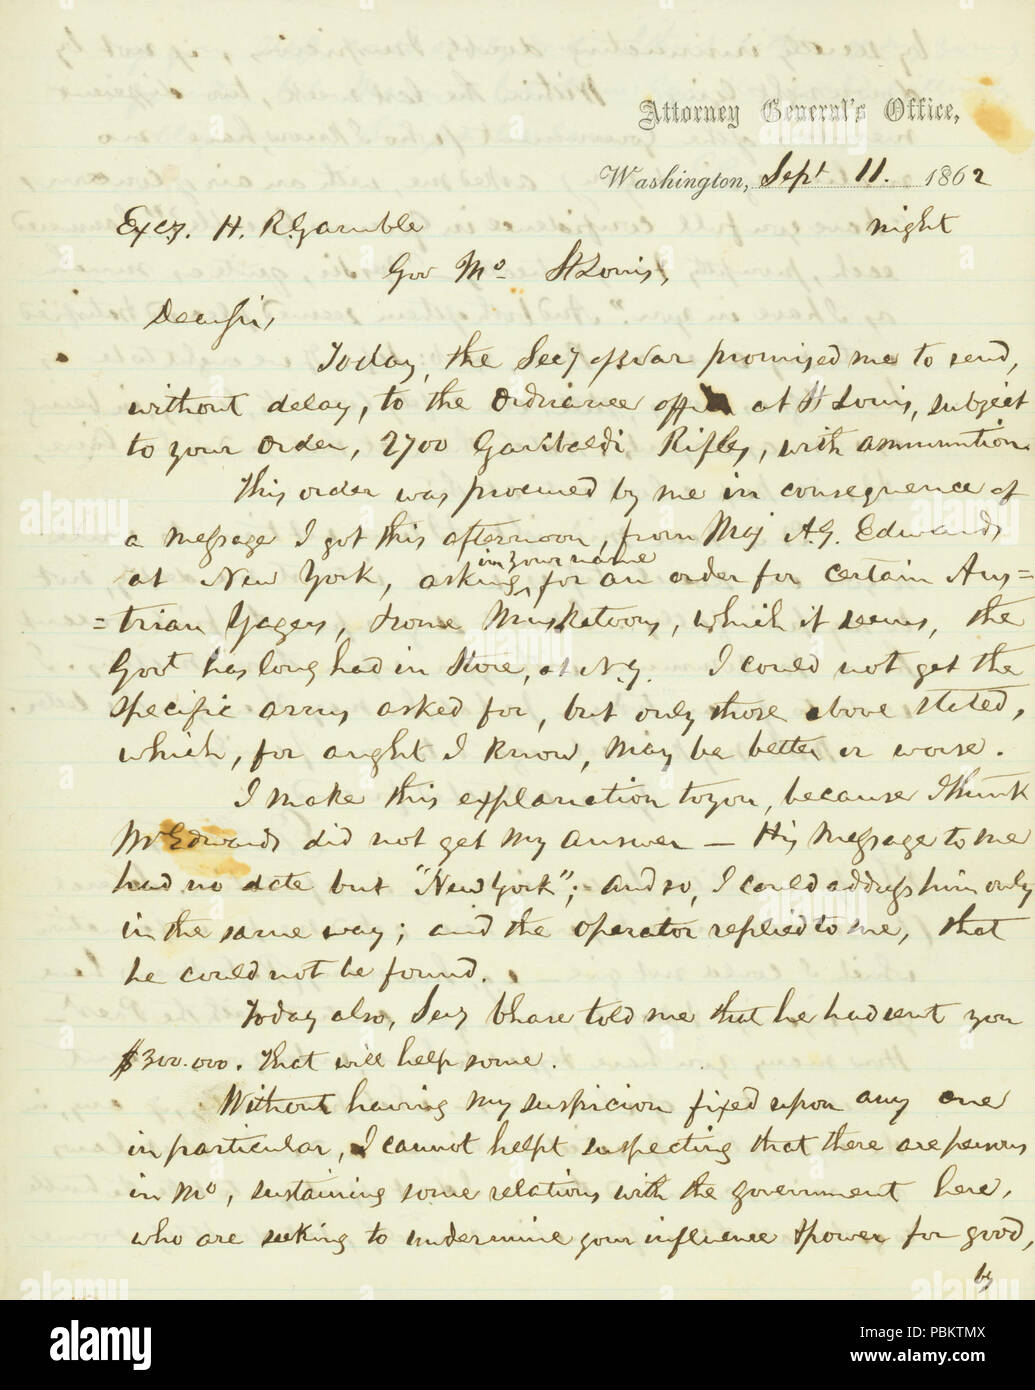 Attorney General's Office,
Washington, Sept 11. 1862
Excy. H. R. Gamble night
Gov Mo. St Louis,
Dear Sir,
Today, the Secy of War promised me to send,
without delay, to the Ordinance officer at St Louis, subject
to your order, 2700 Garibaldi Rifles, with ammunition.
This order was procured by me in consequence of
a message I got this afternoon, from Maj A.G. Edwards
at New York, asking, in your name for an order for certain Aus=
=trian Yagers, & some Musketoons, which it seems, the
Govt has long had in store, at N.Y. I could not get the
specific arms asked for, but only those above stated,
which, for aught I know, may be better or worse.
I make this explanation to you, because I think
Mr Edwards did not get my answer — His message to me
had no date but "New York"; and so, I could address him only
in the same way; and the operator replied to me, that
he could not be found.
Today also, Secy Chase told me that he had sent you
$300.000. That will help some.
Without having my suspicion fixed upon any one
in particular, I cannot helpt suspecting that there are persons
in Mo, sustaining some relations with the government here,
who are seeking to undermine your influence & power for good,
by
alamy
Image ID: PBKTMX
www.alamy.com